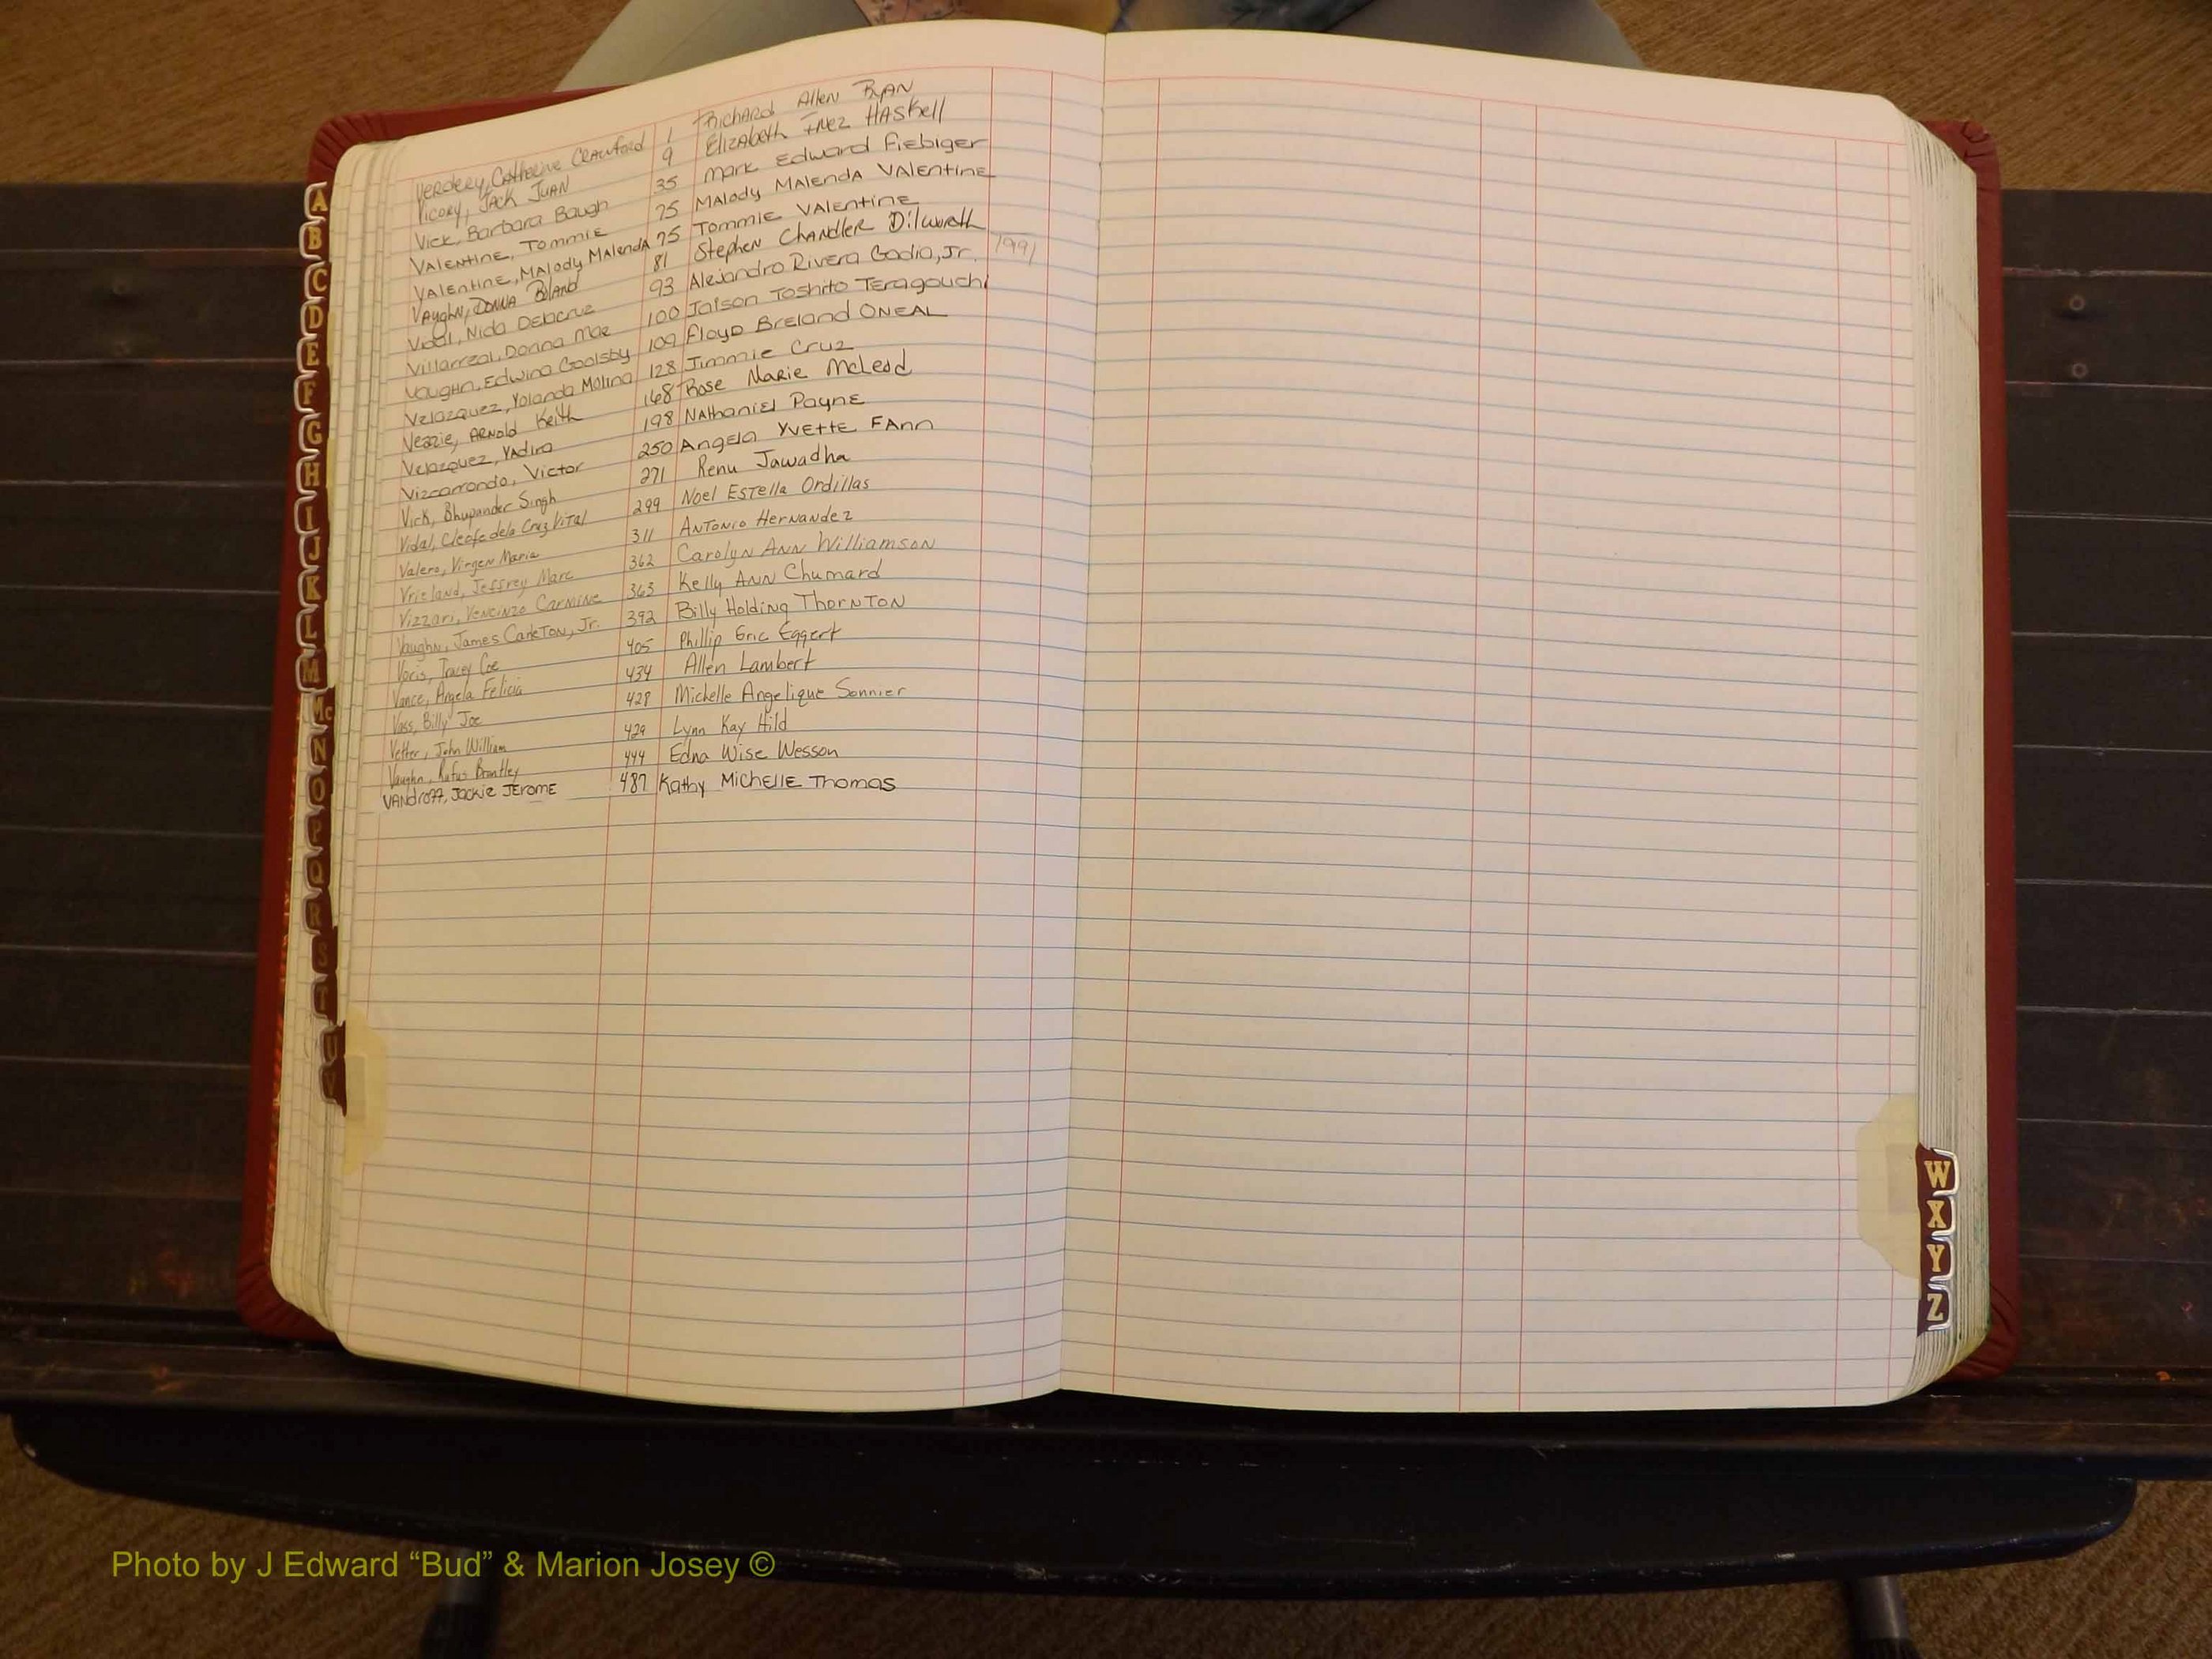 Verdery, Catherine Crawford 1 Richard Allen Ryan
Vicory, Jack Juan 9 Elizabeth Inez Haskell
Vick, Barbara Baugh 35 Mark Edward Fiebiger
Valentine, Tommie 75 Malody Malenda Valentine
Valentine, Malody Malenda 75 Tommie Valentine
Vaughn, Donna Boland 81 Stephen Chandler Dilworth
Vidal, Nida Delacruz 93 Alejandro Rivera Gadia, Jr. 1991
Villarreal, Donna Mae 100 Jaison Toshito Teragouchi
Vaughn, Edwina Goolsby 109 Floyd Breland Oneal
Velazquez, Yolanda Molina 128 Jimmie Cruz
Veazie, Arnold Keith 168 Rose Marie McLeod
Velazquez, Yadira 198 Nathaniel Payne
Vizcarrondo, Victor 250 Angela Yvette Fann
Vick, Bhupander Singh 271 Renu Jawadha
Vidal, Cleofe dela Cruz Vital 299 Noel Estella Ordillas
Valero, Virgen Maria 311 Antonio Hernandez
Vrieland, Jeffrey Marc 362 Carolyn Ann Williamson
Vizzari, Vencinzo Carmine 363 Kelly Ann Chumard
Vaughn, James Carleton, Jr. 392 Billy Holding Thornton
Voris, Tracey Coe 405 Phillip Eric Eggert
Vance, Angela Felicia 434 Allen Lambert
Voss, Billy Joe 428 Michelle Angelique Sonnier
Vetter, John William 429 Lynn Kay Hild
Vaughn, Rufus Brantley 444 Edna Wise Wesson
Vandroff, Jackie Jerome 487 Kathy Michelle Thomas
A
B
C
D
E
F
G
H
I
J
K
L
M
Mc
N
O
P
Q
R
S
T
U
V
W
X
Y
Z
Photo by J Edward “Bud” & Marion Josey ©